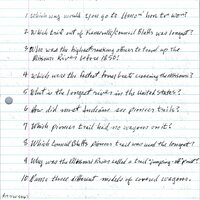 1 Which way would you go to Honor how to wor?
2 Which trail out of Kanesville/Council Bluffs was longest?
3 Who was the highest ranking officer to travel up the
Missouri River before 1850?
4 Which were the fastest forms for crossing the Missouri?
5 What is the longest river in the United States?
6 How did most Indians see pioneer trails?
7 Which pioneer trail had no wagons on it?
8 Which Council Bluffs pioneer trail was used the longest?
9 Why was the Missouri River called a trail "jumping off point"?
10 Name three different models of covered wagons.
Answers: